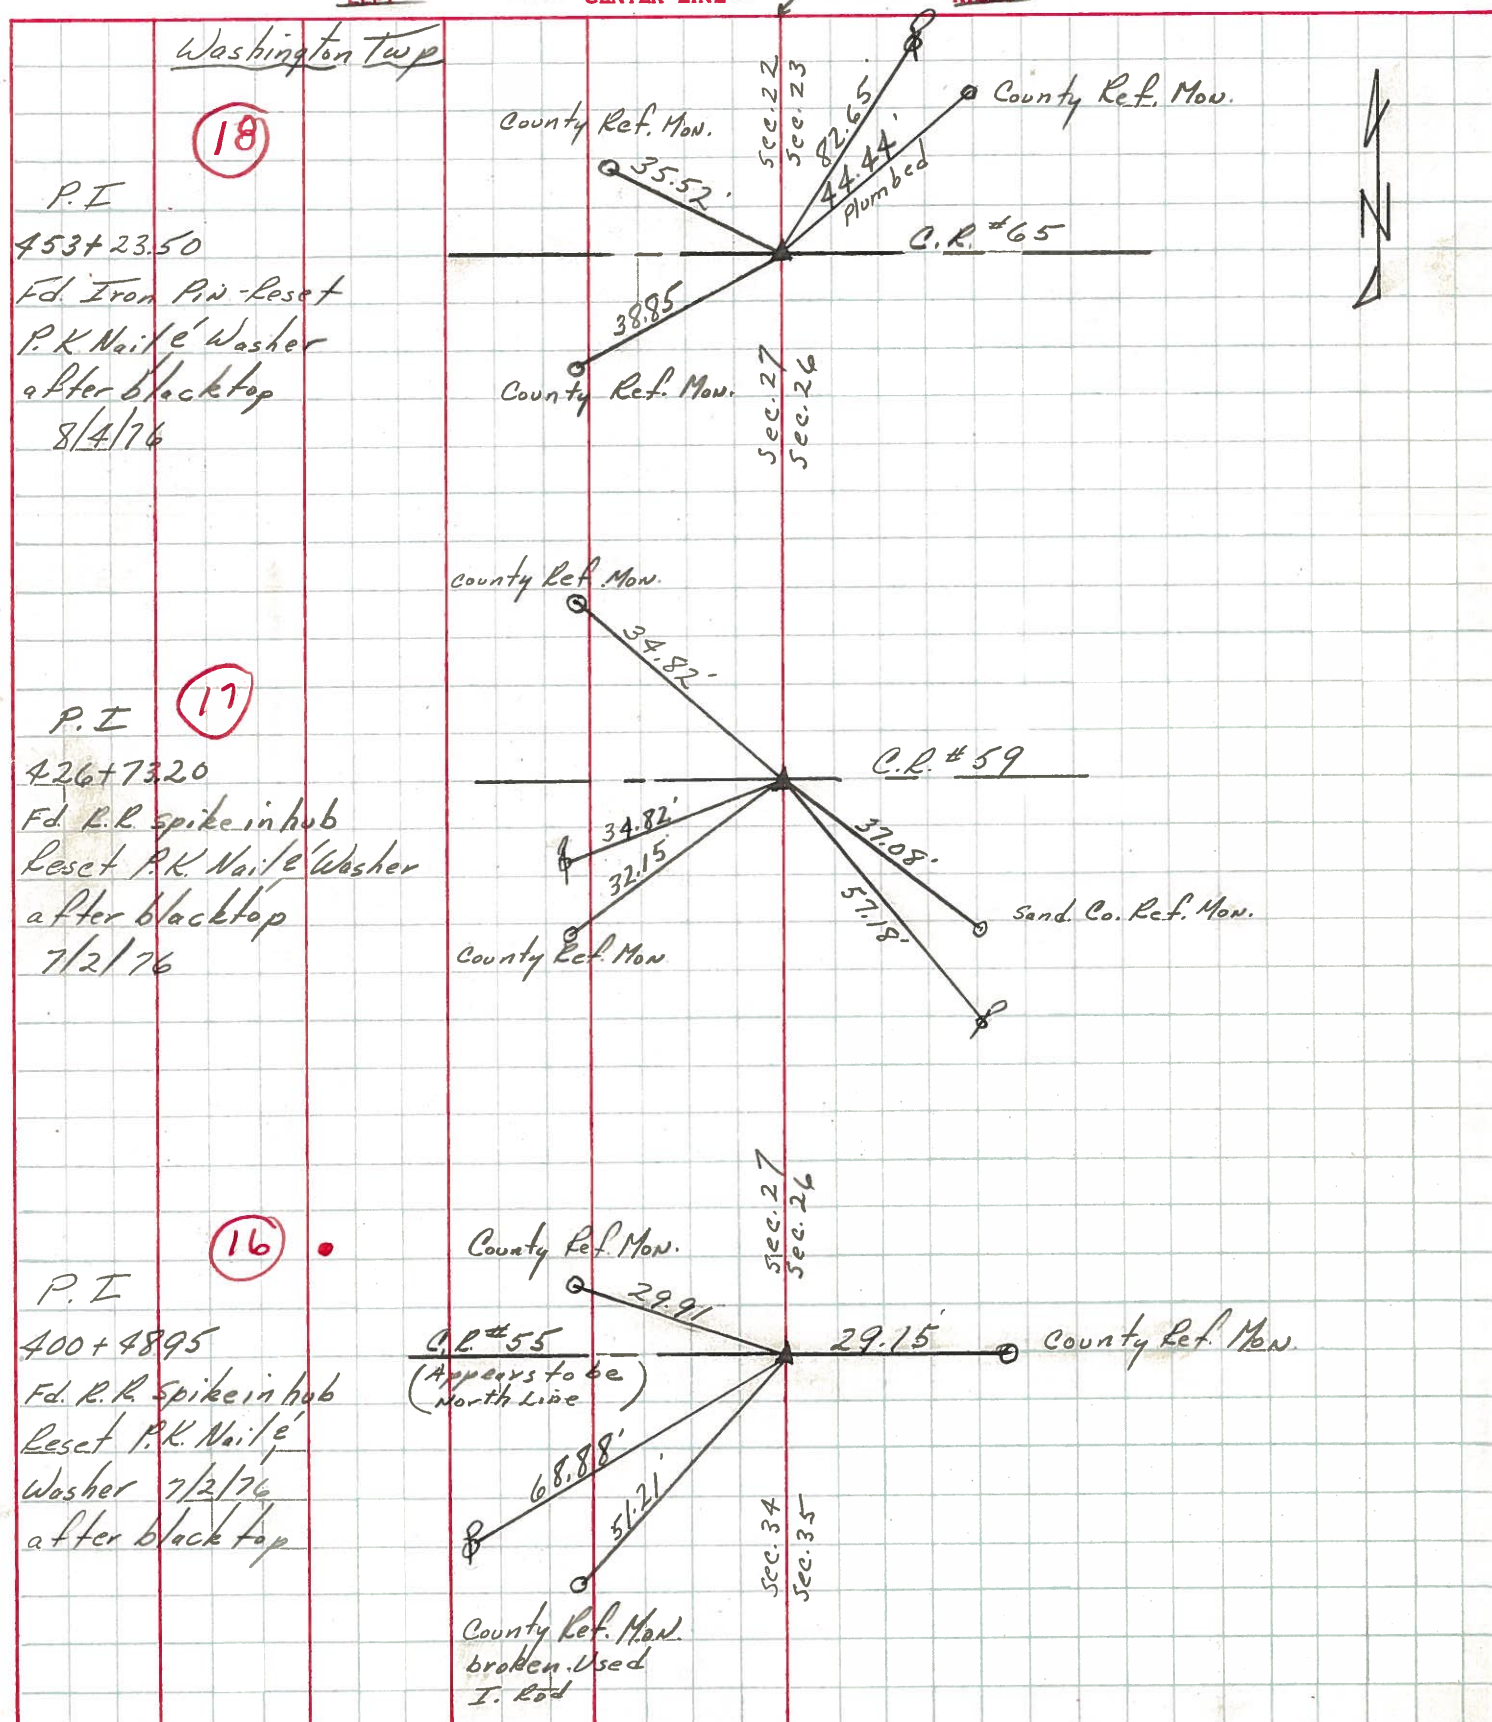 CENTER LINE
Washington Twp
18
P.I
453+23.50
Fd. Iron Pin-Reset
P.K Nail é Washer
after blacktop
8/4/76
County Ref. Mon.
35.52'
Sec. 22
Sec. 23
82.65'
44.44'
Plumbed
County Ref. Mon.
C.R. #65
N
38.85
County Ref. Mon.
Sec. 27
Sec. 26
17
P.I
426+73.20
Fd. R.R. spike in hub
Reset P.K. Nail é Washer
after blacktop
7/2/76
County Ref. Mon.
34.82'
C.R. #59
34.82'
32.15
County Ref. Mon
37.08'
57.18'
Sand. Co. Ref. Mon.
Sec. 27
Sec. 26
16
P.I
400+48.95
Fd. R.R. Spike in hub
Reset P.K. Nail é
Washer 7/2/76
after blacktop
County Ref. Mon.
29.91
C.R. #55
(Appears to be
North Line)
29.15'
County Ref. Mon.
68.88'
51.21'
Sec. 34
Sec. 35
County Ref. Mon.
broken. Used
I. Rod